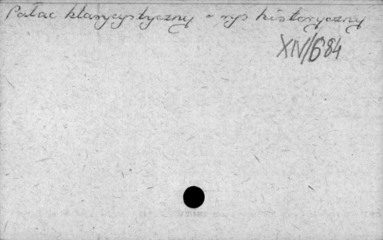 Pałac klasycystyczny - rys historyczny
XIV/684